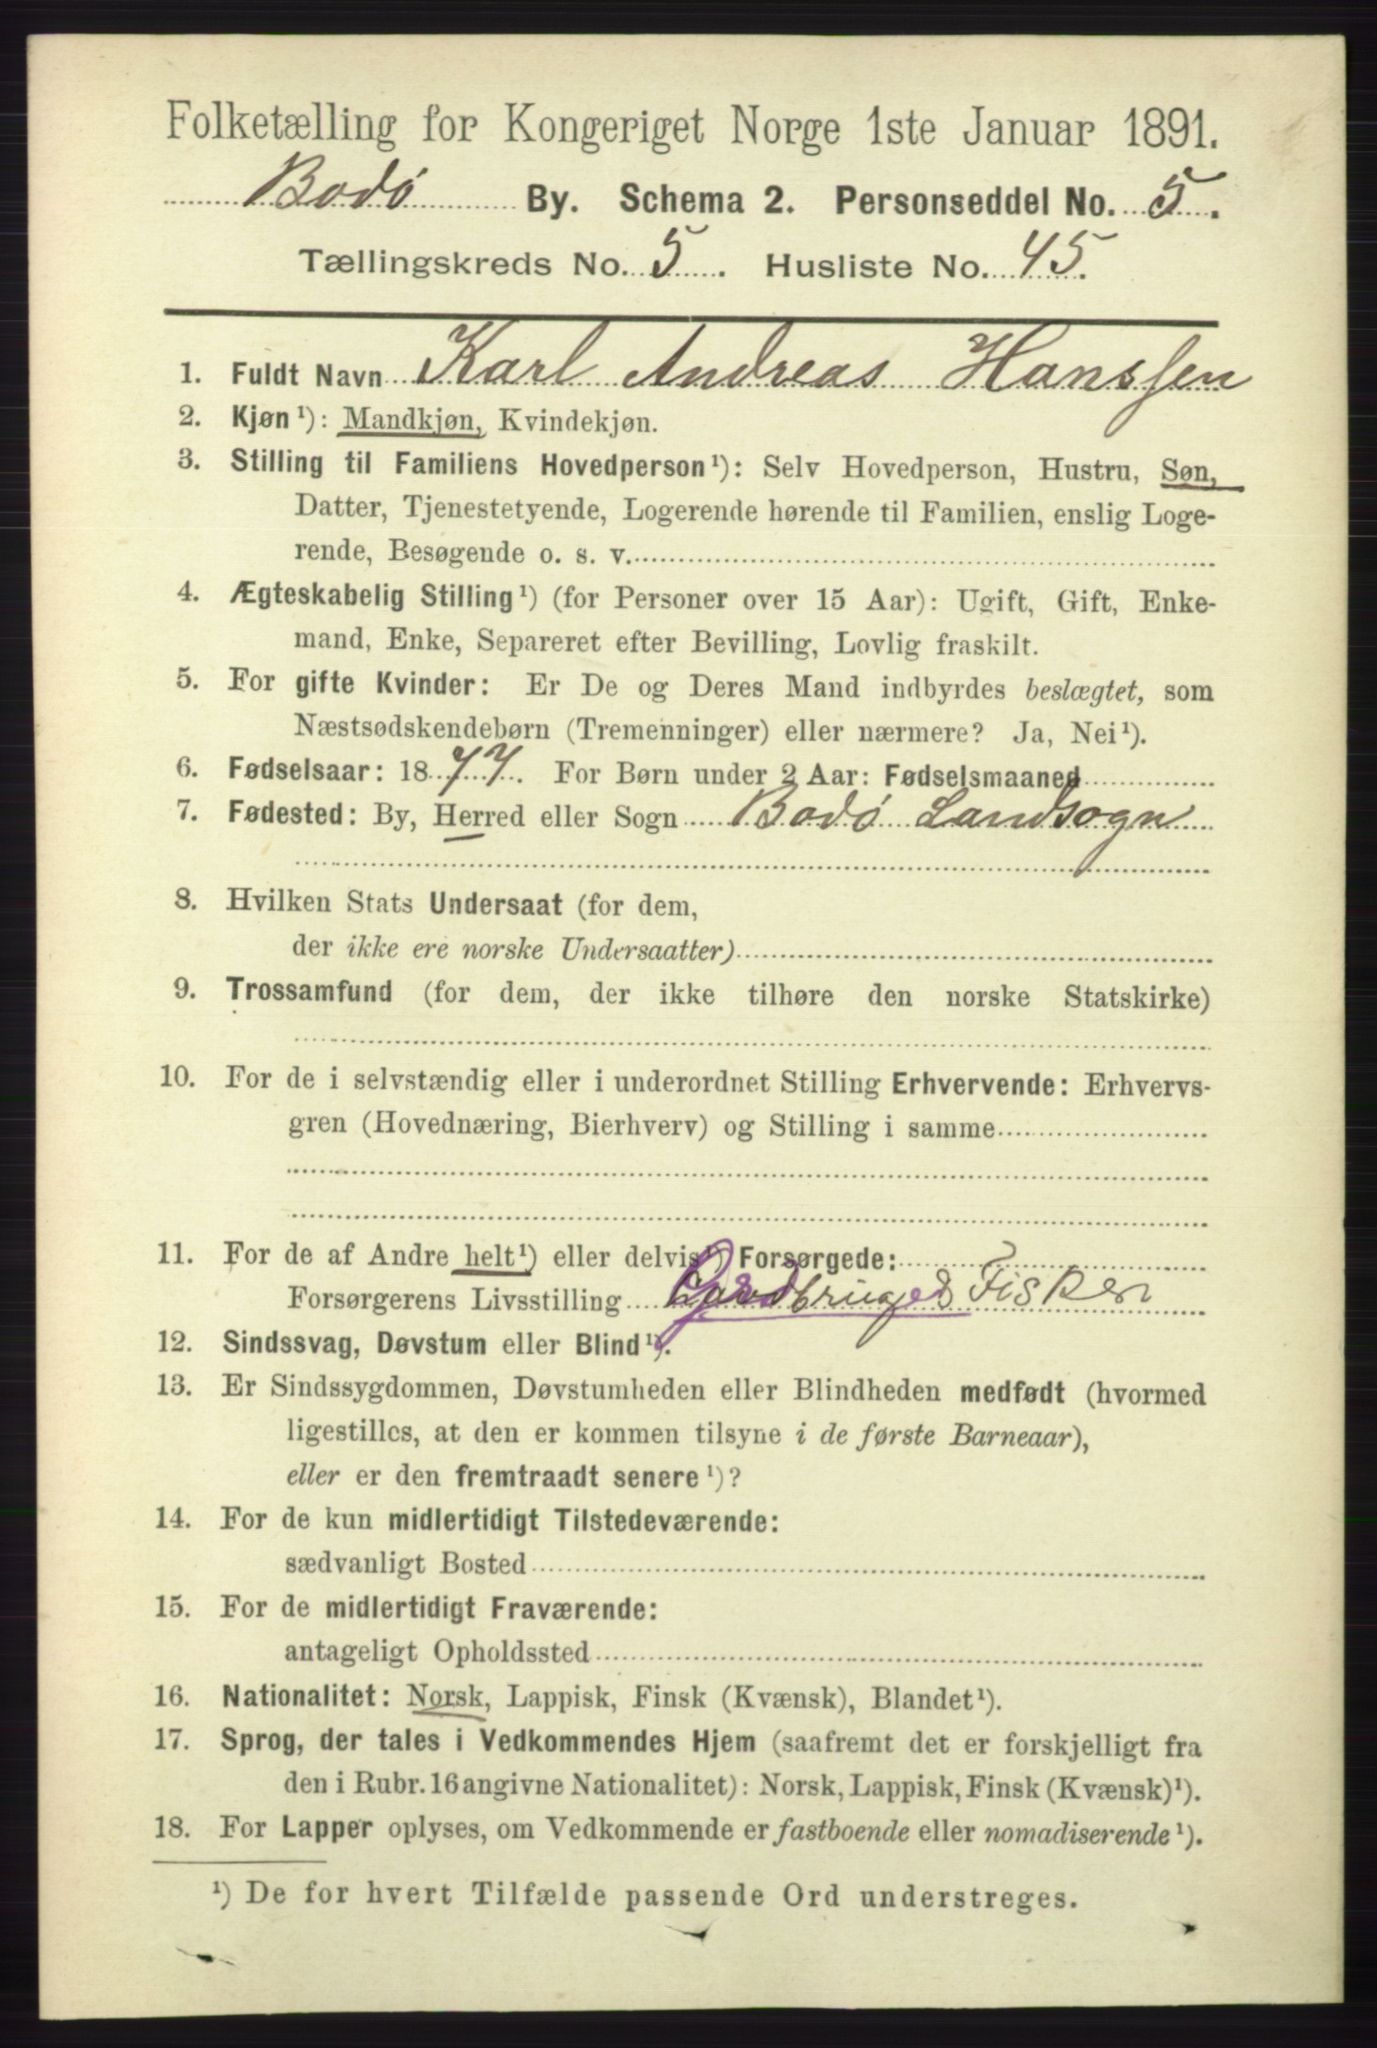 Folketælling for Kongeriget Norge 1ste Januar 1891.
Bodø By. Schema 2. Personseddel No. 5.
Tællingskreds No. 5. Husliste No. 45.
1. Fuldt Navn Karl Andreas Hanssen
2. Kjøn¹): Mandkjøn, Kvindekjøn.
3. Stilling til Familiens Hovedperson¹): Selv Hovedperson, Hustru, Søn,
Datter, Tjenestetyende, Logerende hørende til Familien, enslig Loge-
rende, Besøgende o. s. v.
4. Ægteskabelig Stilling¹) (for Personer over 15 Aar): Ugift, Gift, Enke-
mand, Enke, Separeret efter Bevilling, Lovlig fraskilt.
5. For gifte Kvinder: Er De og Deres Mand indbyrdes beslægtet, som
Næstsødskendebørn (Tremenninger) eller nærmere? Ja, Nei¹).
6. Fødselsaar: 1877. For Børn under 2 Aar: Fødselsmaaned
7. Fødested: By, Herred eller Sogn Bodø Landsogn
8. Hvilken Stats Undersaat (for dem,
der ikke ere norske Undersaatter)
9. Trossamfund (for dem, der ikke tilhøre den norske Statskirke)
10. For de i selvstændig eller i underordnet Stilling Erhvervende: Erhvervs-
gren (Hovednæring, Bierhverv) og Stilling i samme
11. For de af Andre helt¹) eller delvis¹) Forsørgede:
Forsørgerens Livsstilling Fisker
12. Sindssvag, Døvstum eller Blind¹).
13. Er Sindssygdommen, Døvstumheden eller Blindheden medfødt (hvormed
ligestilles, at den er kommen tilsyne i de første Barneaar),
eller er den fremtraadt senere¹)?
14. For de kun midlertidigt Tilstedeværende:
sædvanligt Bosted
15. For de midlertidigt Fraværende:
antageligt Opholdssted
16. Nationalitet: Norsk, Lappisk, Finsk (Kvænsk), Blandet¹).
17. Sprog, der tales i Vedkommendes Hjem (saafremt det er forskjelligt fra
den i Rubr. 16 angivne Nationalitet): Norsk, Lappisk, Finsk (Kvænsk)¹).
18. For Lapper oplyses, om Vedkommende er fastboende eller nomadiserende¹).
¹) De for hvert Tilfælde passende Ord understreges.